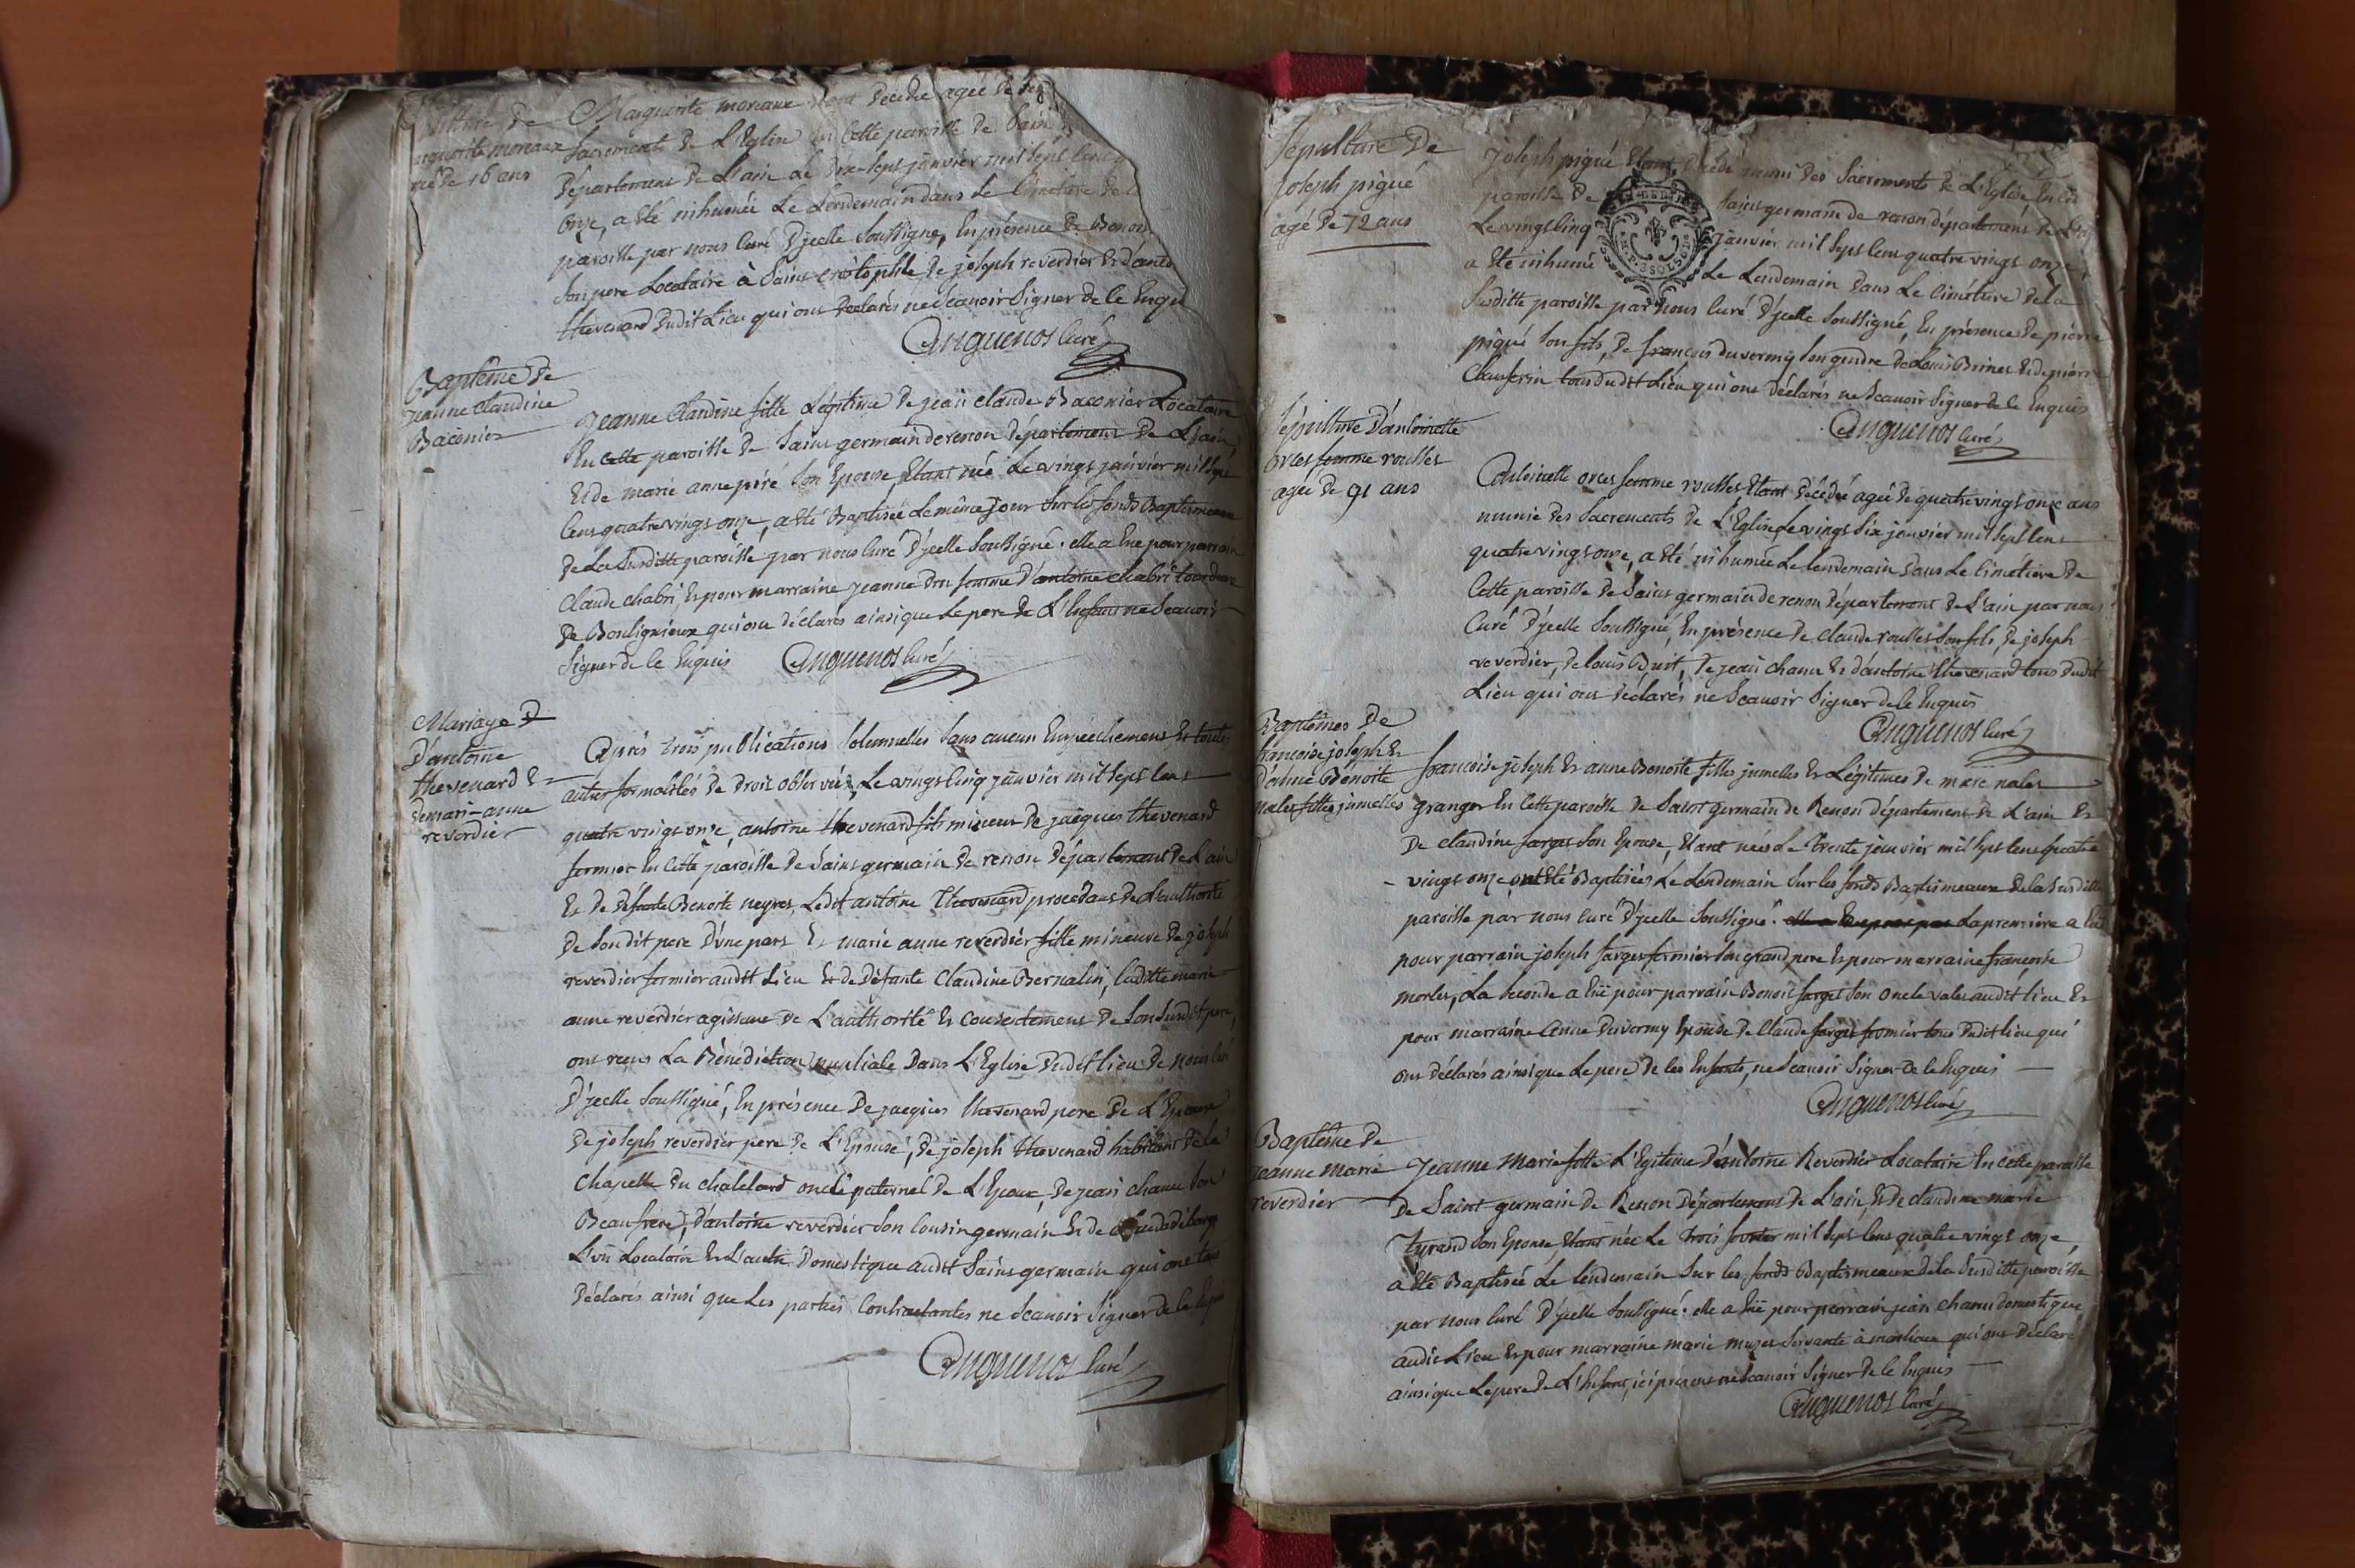 Sépulture de
marguerite moreaux
agée de 16 ans
Marguerite moreaux étant décédée agée de
sacrements de L'Eglise en cette paroisse de Sain
département de L'ain Le dix-sept janvier mil sept cent
onze, a été inhumée Le Lendemain dans Le cimetiere de
paroisse par nous curé d'jcelle soussigné, En présence de Benoit
son pere Locataire à Saint cristophle de joseph reverdier Et d'anto
thevenard dudit Lieu qui ont declarés ne scauoir signer de ce Enqu
Cuguenos curé
Baptême de
jeanne claudine
Baconier
jeanne Claudine fille Légitime de jean claude Baconier Locataire
En cette paroisse de Saint germain de renon département de L'ain,
Et de marie anne piré son Epouse, Etant née Le vingt janvier mil sept
cent quatre vingt onze, a été Baptisée Le même jour sur les fonds Baptismeaux
de La susditte paroisse par nous curé d'jcelle soussigné. elle a Eue pour parrain
Claude chabri, Et pour marraine jeanne dru femme d'antoine chabri tous deux
de Bouligneux qui ont déclarés ainsi que Le pere de L'Enfant ne scauoir
signer de ce Enquis Cuguenos curé
Mariage
D'antoine
thevenard Et
de mari-anne
reverdier
Après trois publications solemnelles sans aucun Empêchement Et toutes
autres formalités de droit observées, Le vingt cinq janvier mil sept cent
quatre vingt onze, antoine thevenard fils mineur de jacques thevenard
fermier En cette paroisse de Saint germain de renon département de L'ain
Et de défunte Benoite neyret, Ledit antoine Thevenard procedant de L'authorité
de son dit pere d'vne part Et marie anne reverdier fille mineure de joseph
reverdier fermier audit Lieu Et de défunte Claudine Bernalin, laditte marie
anne reverdier agissant de L'authorité Et consentement de son susdit pere,
ont reçus La Bénédiction nuptiale dans L'Eglise dudit lieu de nous curé
D'jcelle soussigné, En présence de jacques thevenard pere de L'Epoux
de joseph reverdier pere de L'Epouse, de joseph thevenard habitant de la
chapelle du chatelard oncle paternel de L'Epoux, de jean chanu son
Beaufrere, d'antoine reverdier son cousin germain Et de
L'vn Locataire Et L'autre Domestique audit Saint germain qui ont tous
déclarés ainsi que Les parties contractantes ne scauoir signer de ce Enquis
Cuguenos curé
Sépulture de
joseph pigué
agé de 72 ans
joseph pigué Etant décédé muni des sacrements de L'Eglise En cette
paroisse de Saint germain de renon département de L'ain
Le vingt cinq janvier mil sept cent quatre vingt onze,
a été inhumé Le Lendemain dans Le cimetiere de la
susditte paroisse par nous curé d'jcelle soussigné, En présence de pierre
pigué son fils, de françois duvermy son gendre de Louis Brines Et de pierre
Chauferin tous dudit Lieu qui ont déclarés ne scauoir signer de ce Enquis
Cuguenos curé
Sépulture d'antoinette
orcet femme roulles
agée de 91 ans
Antoinette orcet femme roulles Etant décédée agée de quatre vingt onze ans
munie des sacrements de L'Eglise Le vingt six janvier mil sept cent
quatre vingt onze, a été inhumée Le lendemain dans Le cimetiere de
cette paroisse de Saint germain de renon département de L'ain par nous
curé d'jcelle soussigné, En présence de claude roulles son fils, de joseph
reverdier, de louis Buit, de jean chanu Et d'antoine thevenard tous dudit
Lieu qui ont déclarés ne scauoir signer de ce Enquis
Cuguenos curé
Baptêmes de
françoise joseph Et
d'anne Benoite
nales filles jumelles
françoise joseph Et anne Benoite filles jumelles Et Légitimes de marc nales
granger En cette paroisse de Saint germain de Renon département de L'ain Et
de claudine farget son Epouse, Etant nées Le trente janvier mil sept cent quatre
vingt onze ont été Baptisées Le lendemain sur les fonds Baptismeaux de la susditte
paroisse par nous curé d'jcelle soussigné. La premiere a Eue
pour parrain joseph farget fermier son grand pere Et pour marraine françoise
morlet, La seconde a Eüe pour parrain Benoit farget son oncle valet audit lieu Et
pour marraine anne duvermy Epouse de Claude farget fermier tous dudit lieu qui
ont déclarés ainsi que Le pere de ces Enfants, ne scauoir signer de ce Enquis
Cuguenos curé
Baptême de
jeanne marie
reverdier
Jeanne Marie fille L'Egitime d'antoine Reverdier Locataire En cette paroisse
de Saint germain de Renon département de L'ain, Et de claudine marie
tyrand son Epouse, Etant née Le trois fevrier mil sept cent quatre vingt onze,
a été Baptisée Le lendemain sur les fonds Baptismeaux de la susditte paroisse
par nous curé d'jcelle soussigné. elle a Eüe pour parrain jean chanu domestique
audit Lieu Et pour marraine marie muzet servante à marlieux qui ont déclaré
ainsi que Le pere de L'Enfant, ici présent ne scauoir signer de ce Enquis
Cuguenos curé